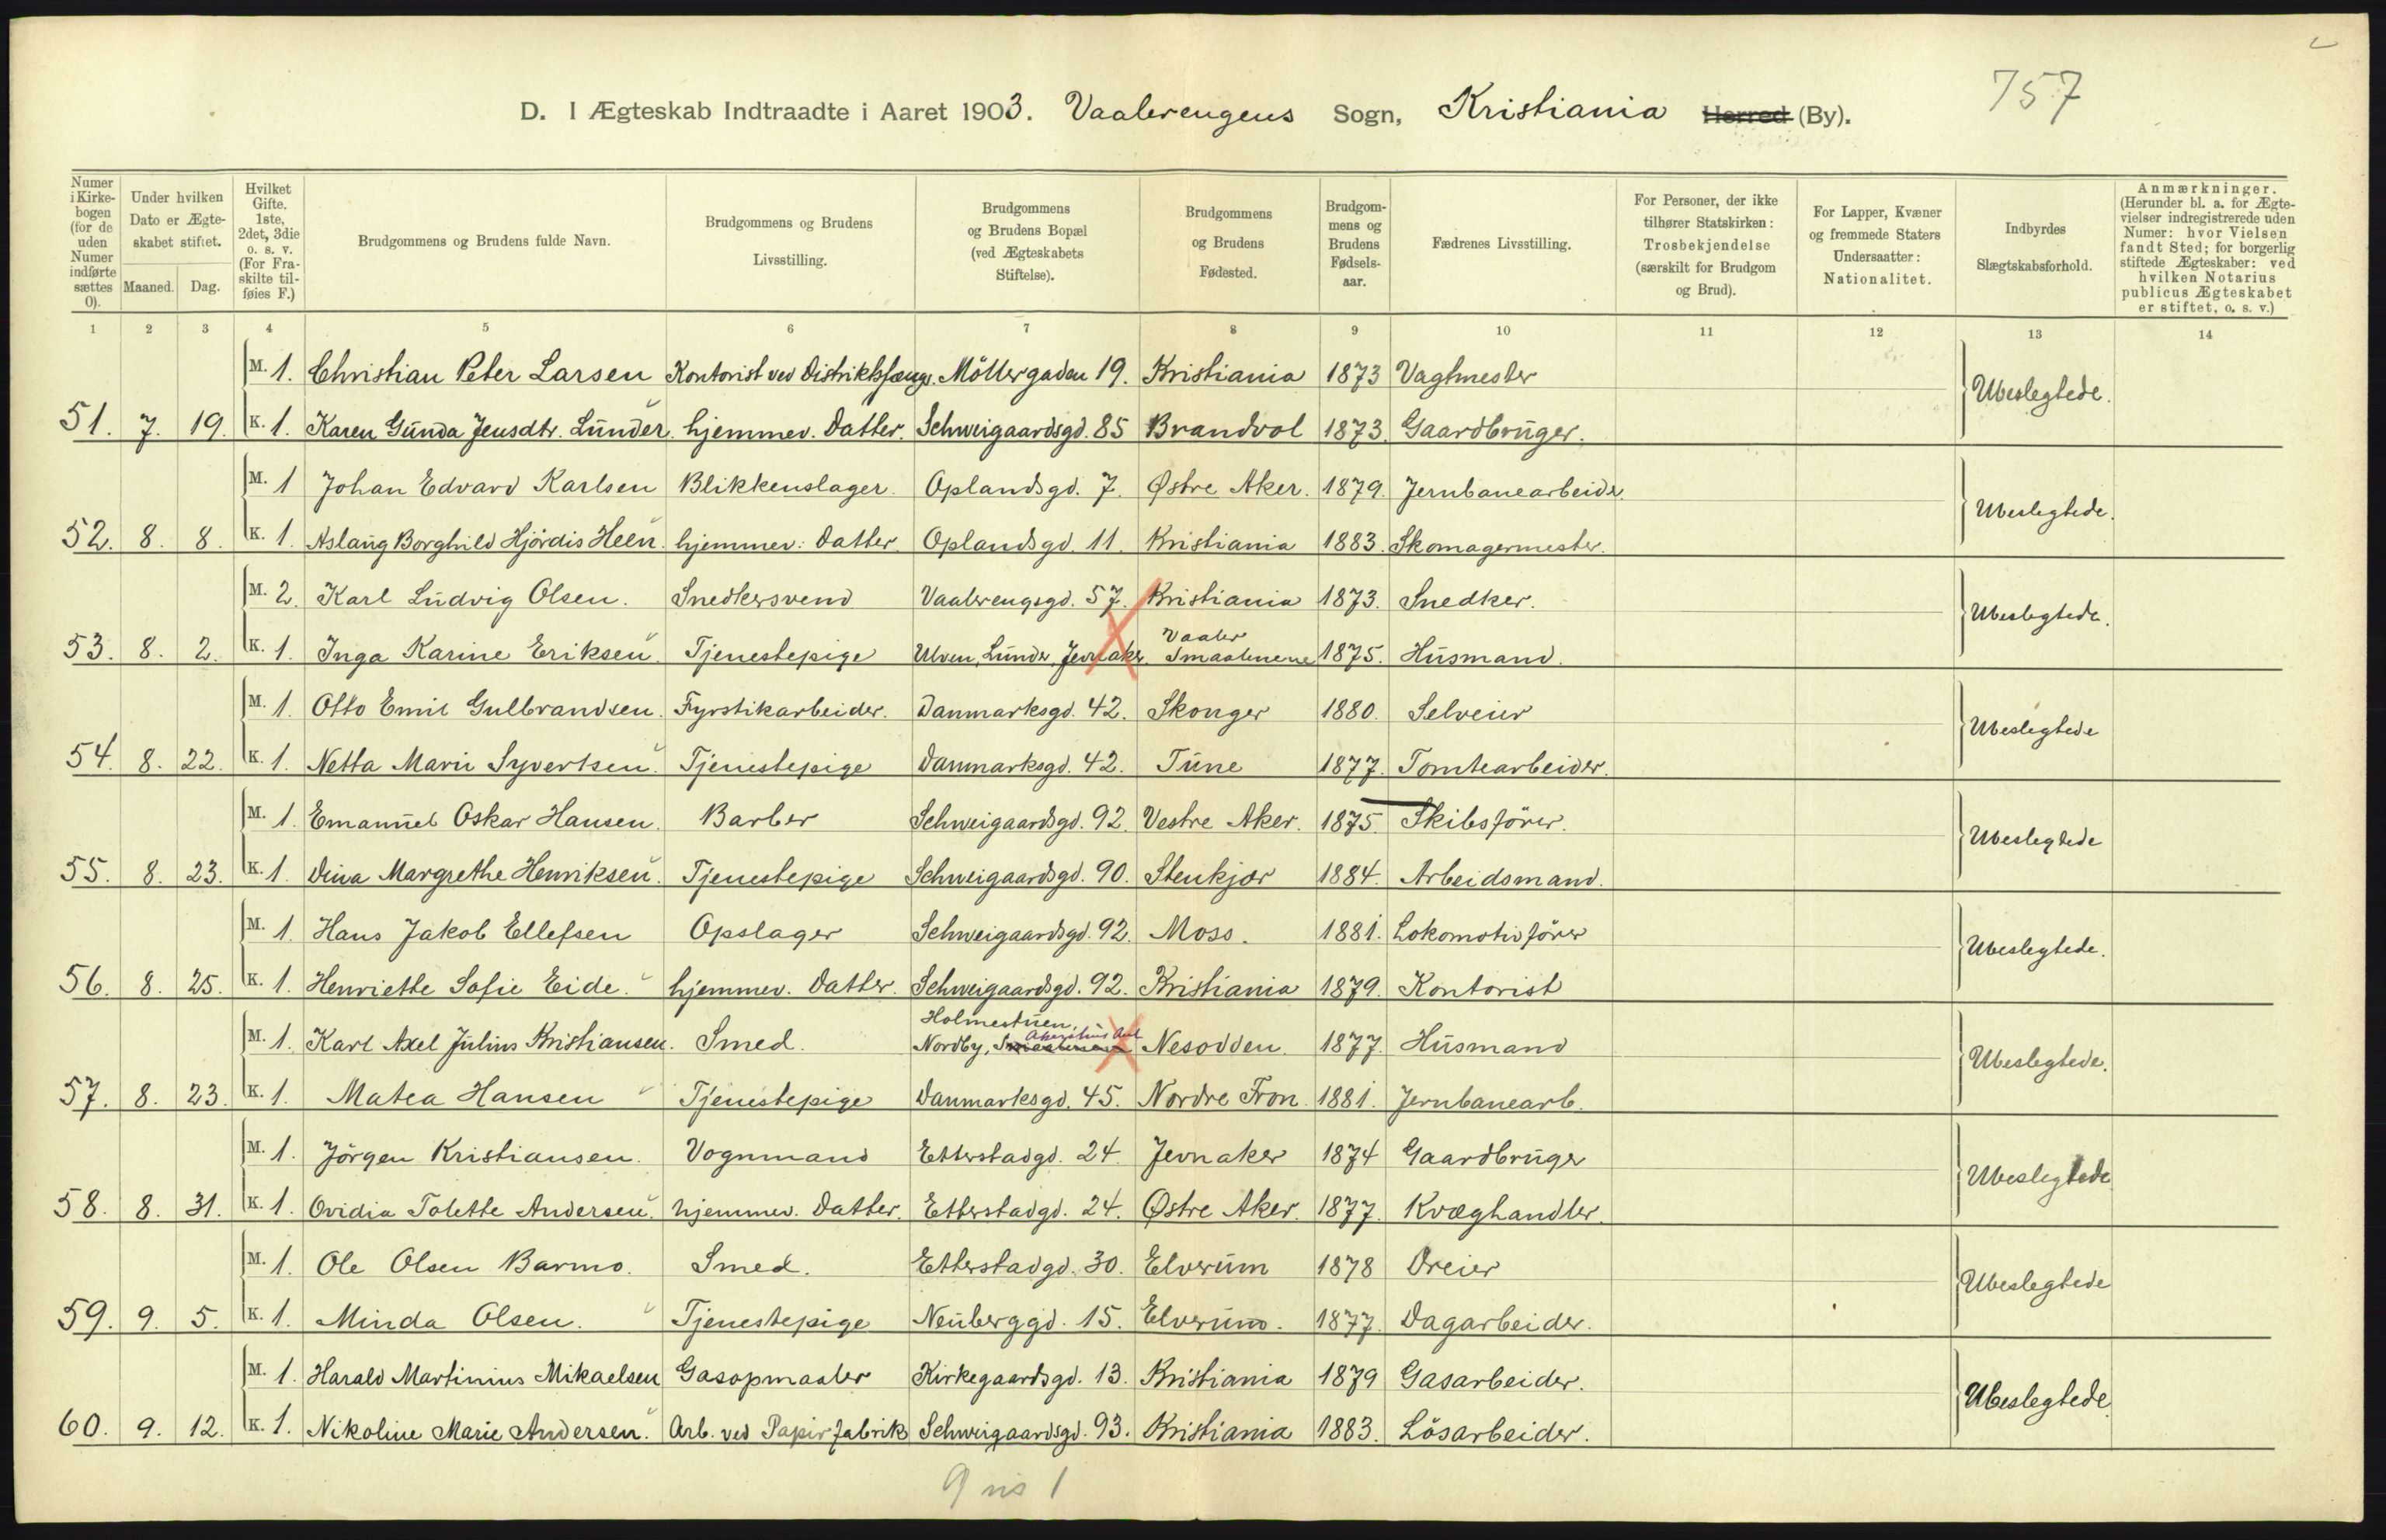 757
D. I Ægteskab Indtraadte i Aaret 1903. Vaalerengens Sogn, Kristiania Herred (By).
Numer i Kirkebogen (for de uden Numer indførte sættes 0). | Under hvilken Dato er Ægteskabet stiftet. Maaned. Dag. | Hvilket Gifte. 1ste, 2det, 3die o. s. v. (For Fraskilte tilføies F.) | Brudgommens og Brudens fulde Navn. | Brudgommens og Brudens Livsstilling. | Brudgommens og Brudens Bopæl (ved Ægteskabets Stiftelse). | Brudgommens og Brudens Fødested. | Brudgommens og Brudens Fødselsaar. | Fædrenes Livsstilling. | For Personer, der ikke tilhører Statskirken: Trosbekjendelse (særskilt for Brudgom og Brud). | For Lapper, Kvæner og fremmede Staters Undersaatter: Nationalitet. | Indbyrdes Slægtskabsforhold. | Anmærkninger. (Herunder bl. a. for Ægtevielser indregistrerede uden Numer: hvor Vielsen fandt Sted; for borgerlig stiftede Ægteskaber: ved hvilken Notarius publicus Ægteskabet er stiftet, o. s. v.)
1 2 3 4 5 6 7 8 9 10 11 12 13 14
M. 1. Christian Peter Larsen Kontorist ved Distriktsfængs. Möllergaden 19. Kristiania 1873 Vagtmester Ubeslegtede.
51. 7. 19. K. 1. Karen Gunda Jensdtr. Lunder. hjemmev. Datter. Schweigaardsgd. 85 Brandvol 1873. Gaardbruger.
M. 1 Johan Edvard Karlsen Blikkenslager. Oplandsgd. 7. Østre Aker. 1879. Jernbanearbeider. Ubeslegtede.
52. 8. 8. K. 1. Aslaug Borghild Hjördis Heen. hjemmev. Datter. Oplandsgd. 11. Kristiania 1883. Skomagermester.
M. 2. Karl Ludvig Olsen. Snedkersvend Vaalerengsgd. 57. Kristiania 1873. Snedker. Ubeslegtede.
53. 8. 2. K. 1. Inga Karine Eriksen. Tjenestepige Ulven, Lunder, Jevnaker. Vaaler Smaalenene 1875. Husmand.
M. 1. Otto Emil Gulbrandsen. Fyrstikarbeider. Danmarksgd. 42. Skonger 1880. Selveier Ubeslegtede
54. 8. 22. K. 1. Netta Marie Syvertsen. Tjenestepige Danmarksgd. 42. Tune 1877. Tomtearbeider.
M. 1. Emanuel Oskar Hansen. Barber Schweigaardsgd. 92. Vestre Aker. 1875. Skibsförer. Ubeslegtede
55. 8. 23. K. 1. Dina Margrethe Henriksen. Tjenestepige Schweigaardsgd. 90. Stenkjær 1884. Arbeidsmand.
M. 1. Hans Jakob Ellefsen Opslager Schweigaardsgd. 92. Moss. 1881. Lokomotivförer Ubeslegtede.
56. 8. 25. K. 1. Henriette Sofie Eide. hjemmev. Datter. Schweigaardsgd. 92. Kristiania 1879. Kontorist
M. 1. Karl Axel Julius Kristiansen. Smed. Holmestuen, Nordby, Smaalenene Akershus Amt Nesodden. 1877. Husmand Ubeslegtede.
57. 8. 23. K. 1. Matea Hansen Tjenestepige Danmarksgd. 45. Nordre Fron 1881. Jernbanearb.
M. 1. Jörgen Kristiansen. Vognmand Etterstadgd. 24. Jevnaker 1874 Gaardbruger Ubeslegtede
58. 8. 31. K. 1. Ovidia Tolette Andersen. hjemmev. Datter. Etterstadgd. 24. Østre Aker. 1877. Kvæghandler.
M. 1. Ole Olsen Barmo. Smed. Etterstadgd. 30. Elverum 1878 Dreier Ubeslegtede
59. 9. 5. K. 1. Minda Olsen. Tjenestepige Neuberggd. 15. Elverum. 1877. Dagarbeider.
M. 1. Harald Martinius Mikaelsen Gasopmaaler Kirkegaardsgd. 13. Kristiania 1879 Gasarbeider. Ubeslegtede
60. 9. 12. K. 1. Nikoline Marie Andersen. Arb. ved Papirfabrik Schweigaardsgd. 93. Kristiania 1883. Lösarbeider.